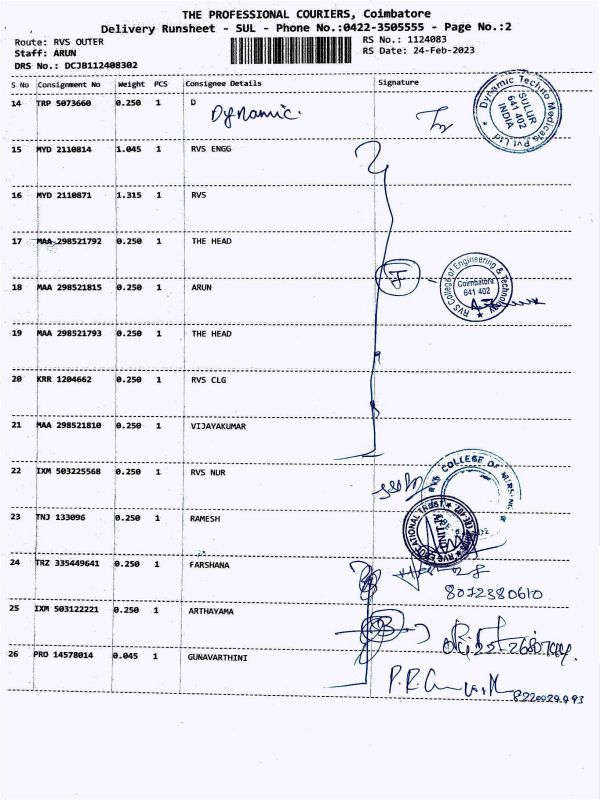 THE PROFESSIONAL COURIERS, Coimbatore
Delivery Runsheet - SUL - Phone No.:0422-3505555 - Page No.:2
Route: RVS OUTER
RS No.: 1124083
Staff: ARUN
RS Date: 24-Feb-2023
DRS No.: DCJB112408302
S No Consignment No Weight PCS Consignee Details Signature
14 TRP 5073660 0.250 1 D
Dynamic.
Dynamic Techno Medicals Pvt Ltd
SULUR
641 402
INDIA
15 MYD 2110814 1.045 1 RVS ENGG
16 MYD 2110871 1.315 1 RVS
17 MAA 298521792 0.250 1 THE HEAD
18 MAA 298521815 0.250 1 ARUN
RVS College of Engineering & Technology
Coimbatore
641 402
19 MAA 298521793 0.250 1 THE HEAD
20 KRR 1204662 0.250 1 RVS CLG
21 MAA 298521810 0.250 1 VIJAYAKUMAR
22 IXM 503225568 0.250 1 RVS NUR
RVS COLLEGE OF NURSING
23 TNJ 133096 0.250 1 RAMESH
RVS EDUCATIONAL TRUST
24 TRZ 335449641 0.250 1 FARSHANA
8072380610
25 IXM 503122221 0.250 1 ARTHAYAMA
26 PRO 14578014 0.045 1 GUNAVARTHINI